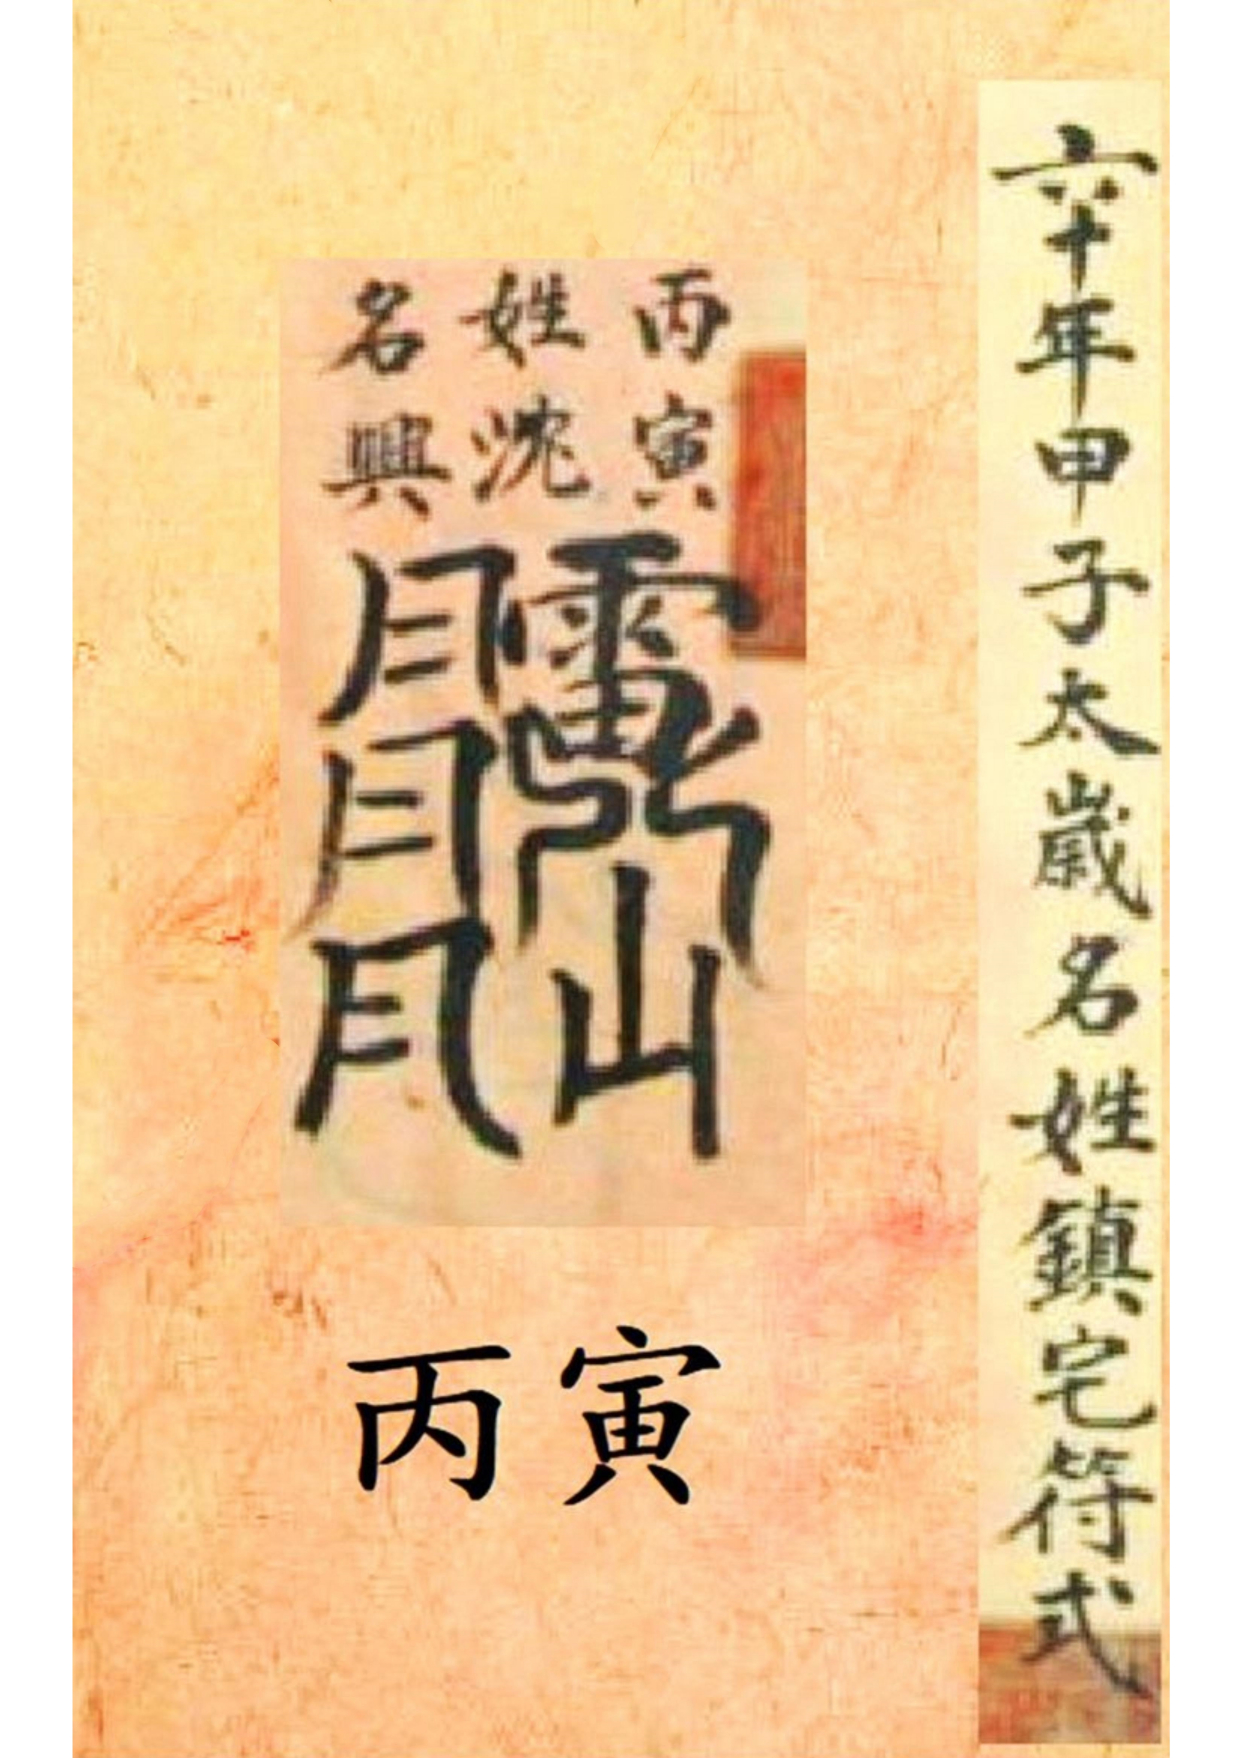 六十年甲子太歲名姓鎮宅符式
丙寅
姓沈
名興
丙寅